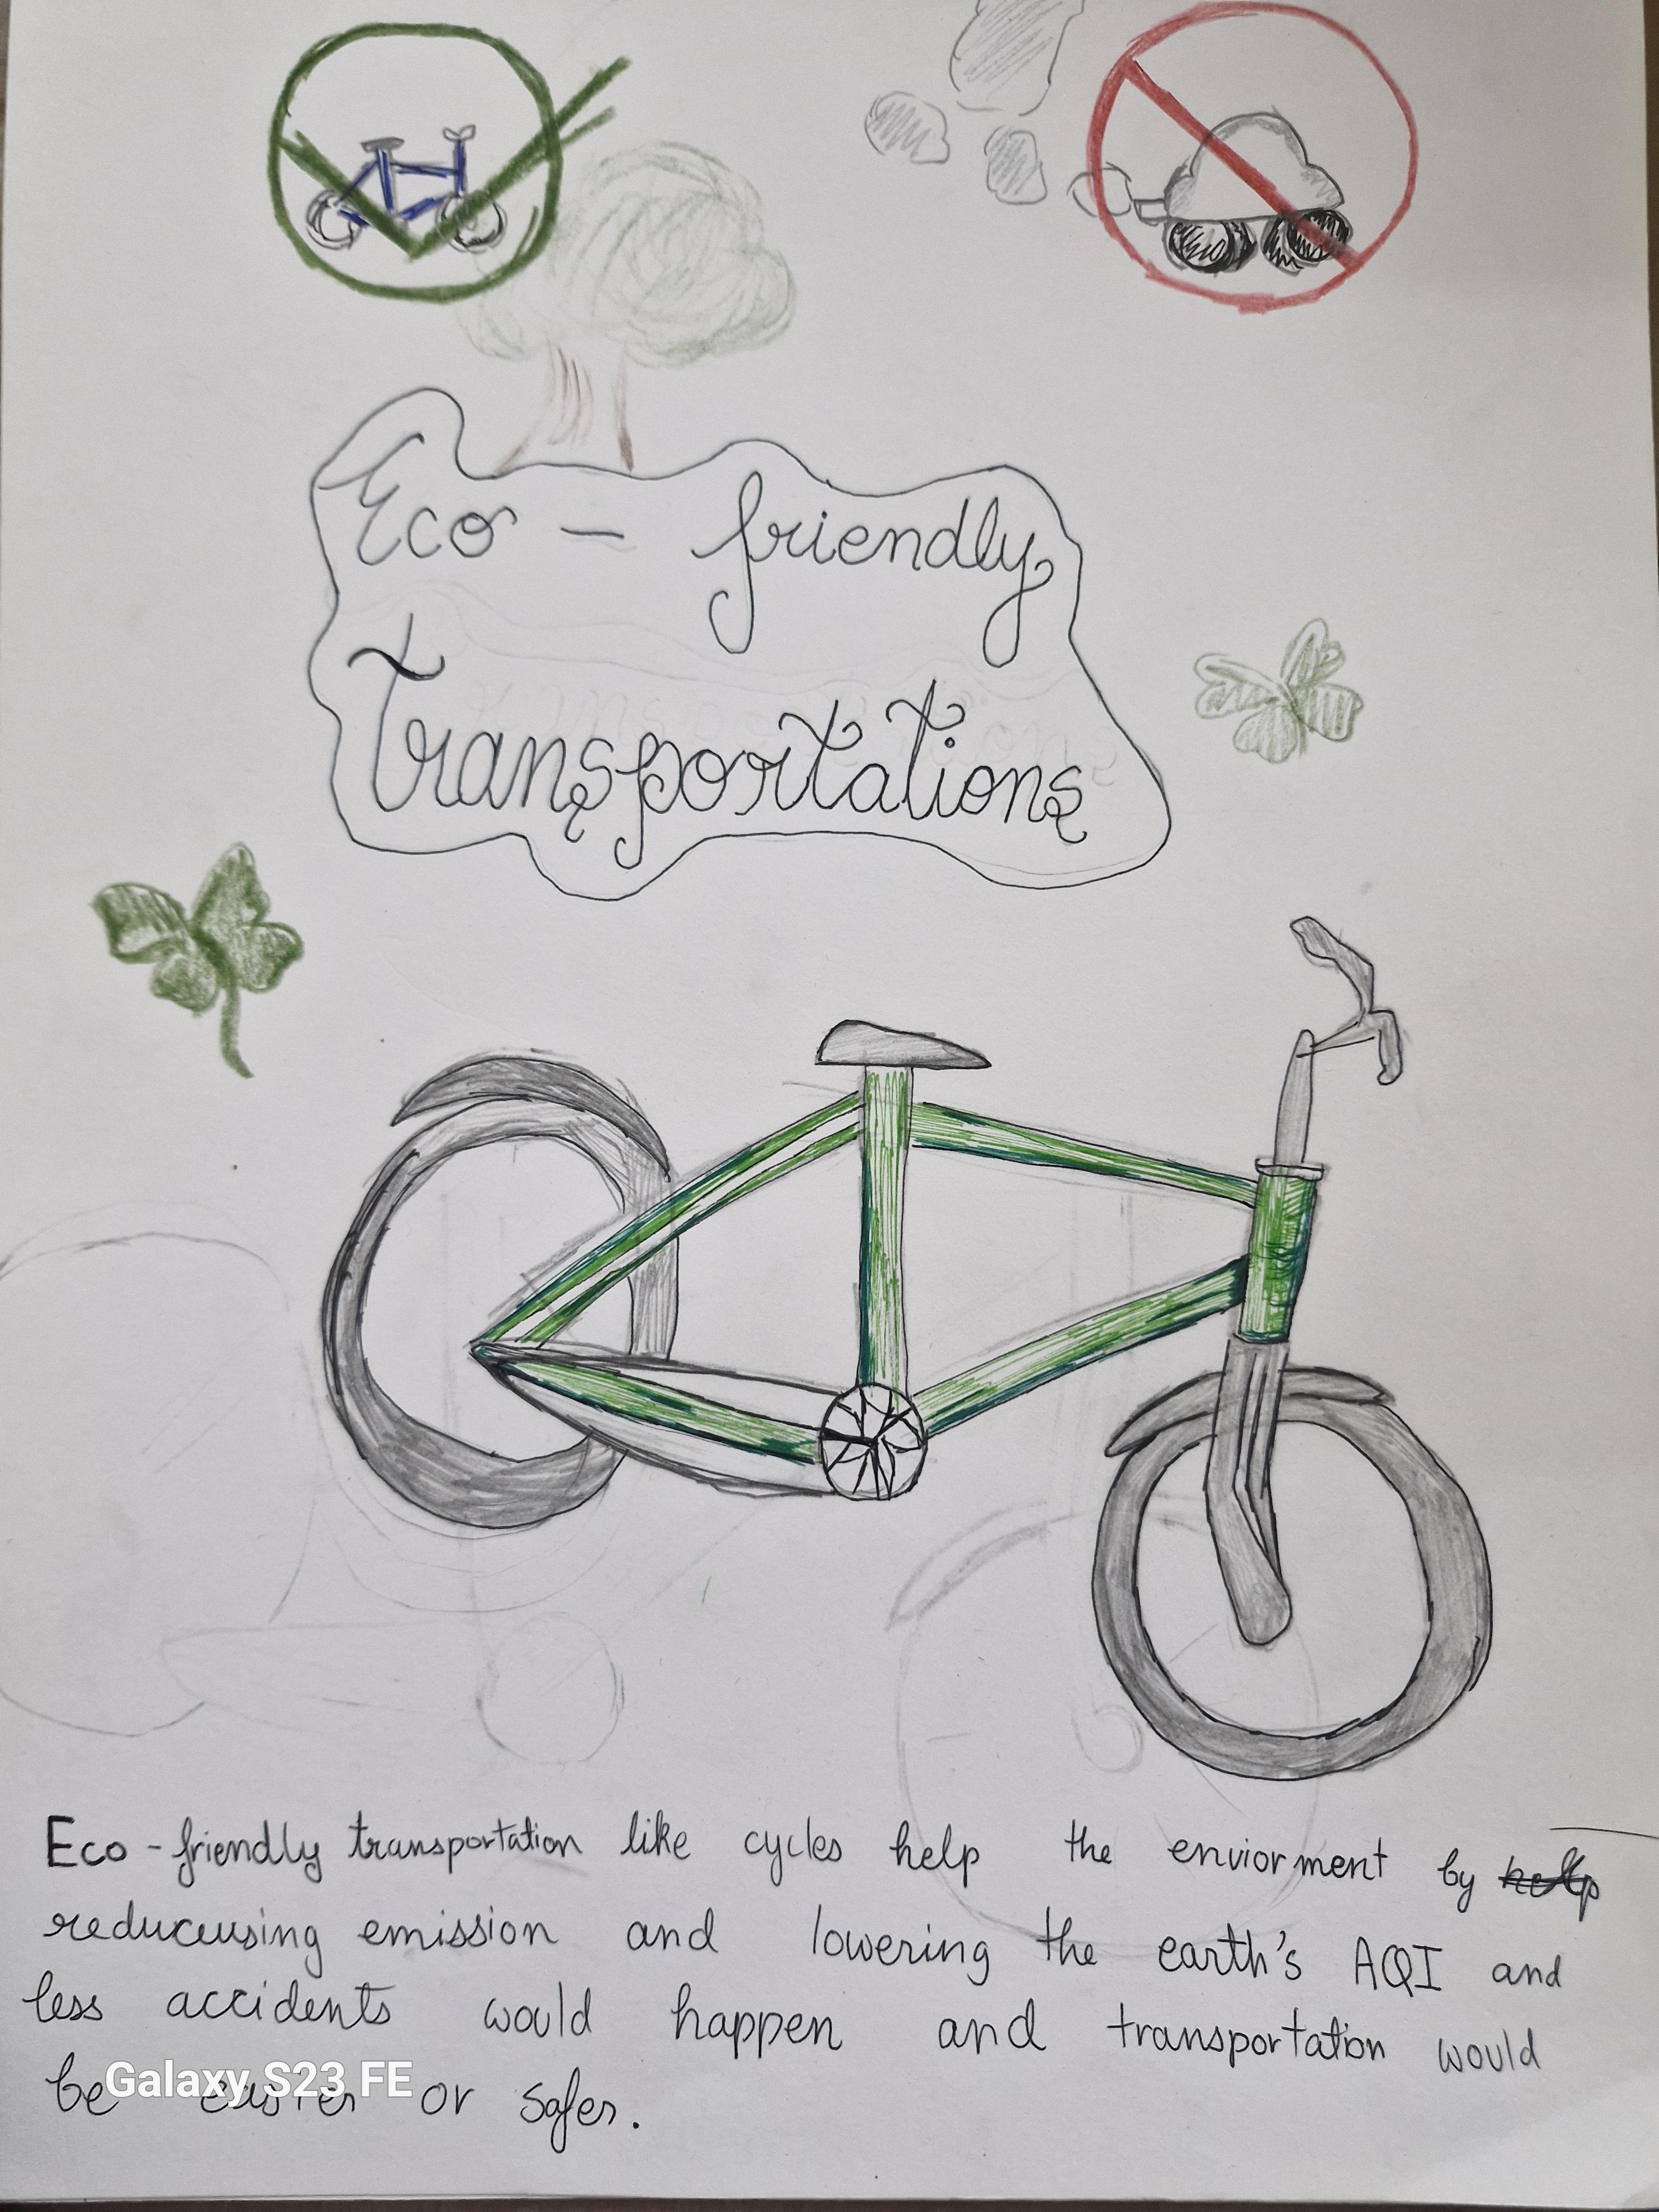 Eco - friendly
Transportations
Eco - friendly transportation like cycles help the enviorment by help
reduceusing emission and lowering the earth's AQI and
less accidents would happen and transportation would
be easier or safer.
Galaxy S23 FE